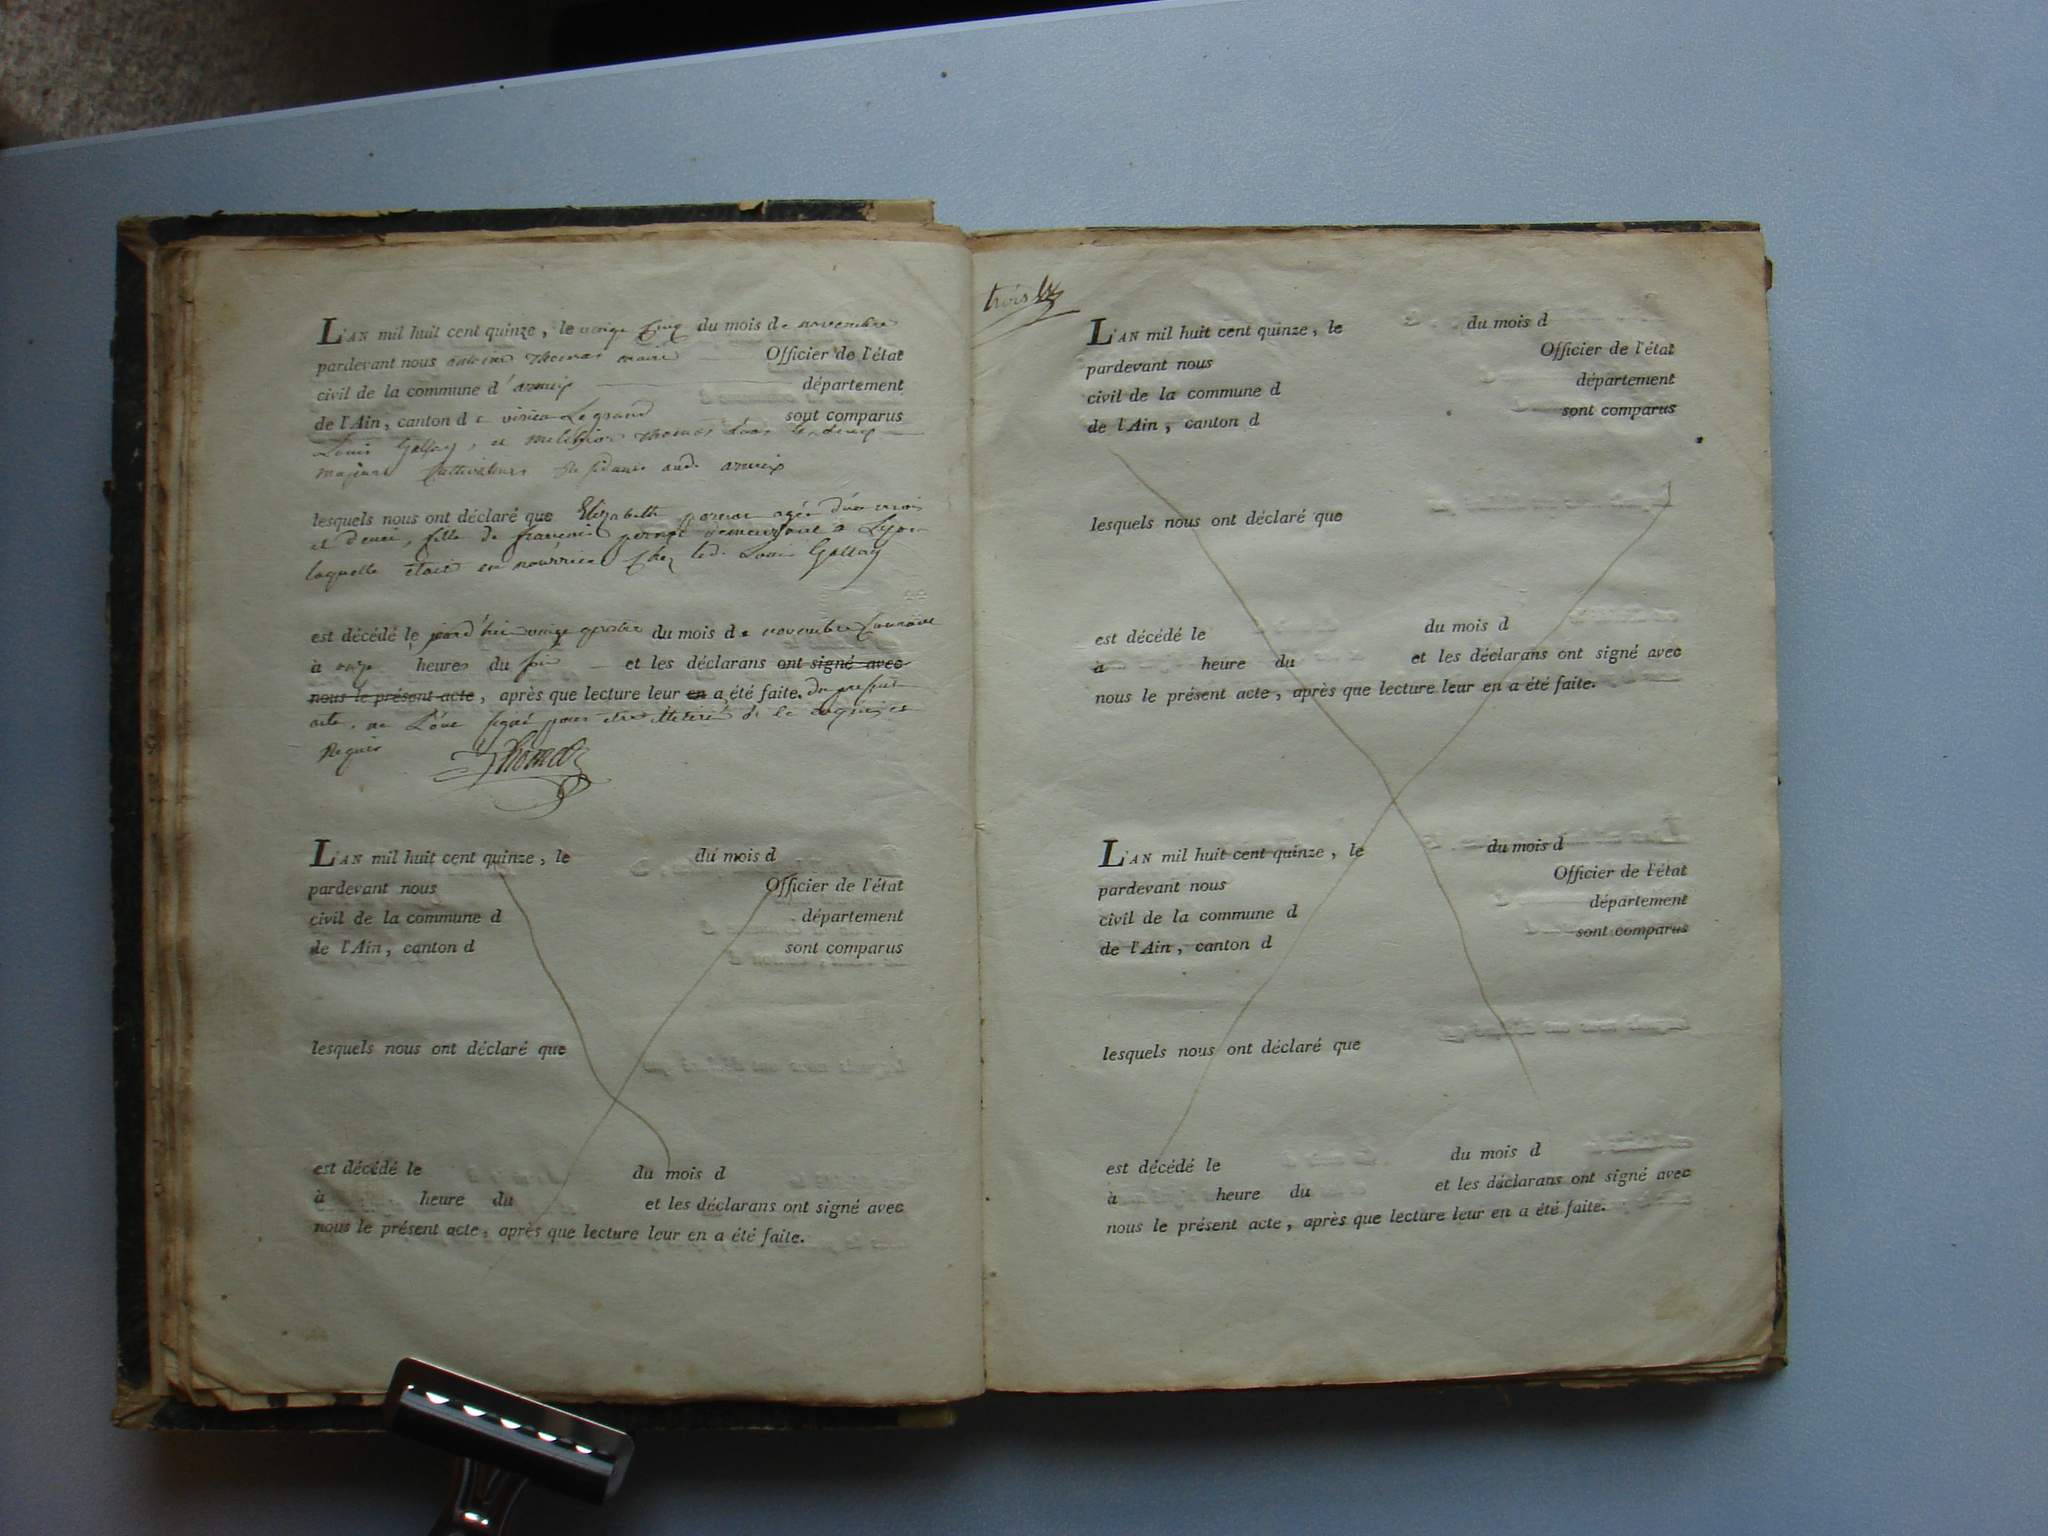 L'AN mil huit cent quinze, le vingt cinq du mois de novembre
pardevant nous antoine Thomas maire Officier de l'état
civil de la commune d'armix département
de l'Ain, canton de virieu Le grand sont comparus
Louis Gallay, et melchior Thomas tous les deux
majeurs Cultivateurs
lesquels nous ont déclaré que Elizabeth agée d'un mois
et demi, fille de françois demeurant a Lyon
laquelle étoit en nourrice chez led. Louis Gallay
est décédé le jourd'hui vingt quatre du mois de novembre Courant
à onze heures du soir et les déclarans ont signé avec
nous le présent acte, après que lecture leur en a été faite. du présent
acte, ne L'ont signé pour être illitéré de ce enquis et
Requis
Thomas
L'AN mil huit cent quinze, le du mois d
pardevant nous Officier de l'état
civil de la commune d département
de l'Ain, canton d sont comparus
lesquels nous ont déclaré que
est décédé le du mois d
à heure du et les déclarans ont signé avec
nous le présent acte, après que lecture leur en a été faite.
trois
L'AN mil huit cent quinze, le du mois d
pardevant nous Officier de l'état
civil de la commune d département
de l'Ain, canton d sont comparus
lesquels nous ont déclaré que
est décédé le du mois d
à heure du et les déclarans ont signé avec
nous le présent acte, après que lecture leur en a été faite.
L'AN mil huit cent quinze, le du mois d
pardevant nous Officier de l'état
civil de la commune d département
de l'Ain, canton d sont comparus
lesquels nous ont déclaré que
est décédé le du mois d
à heure du et les déclarans ont signé avec
nous le présent acte, après que lecture leur en a été faite.